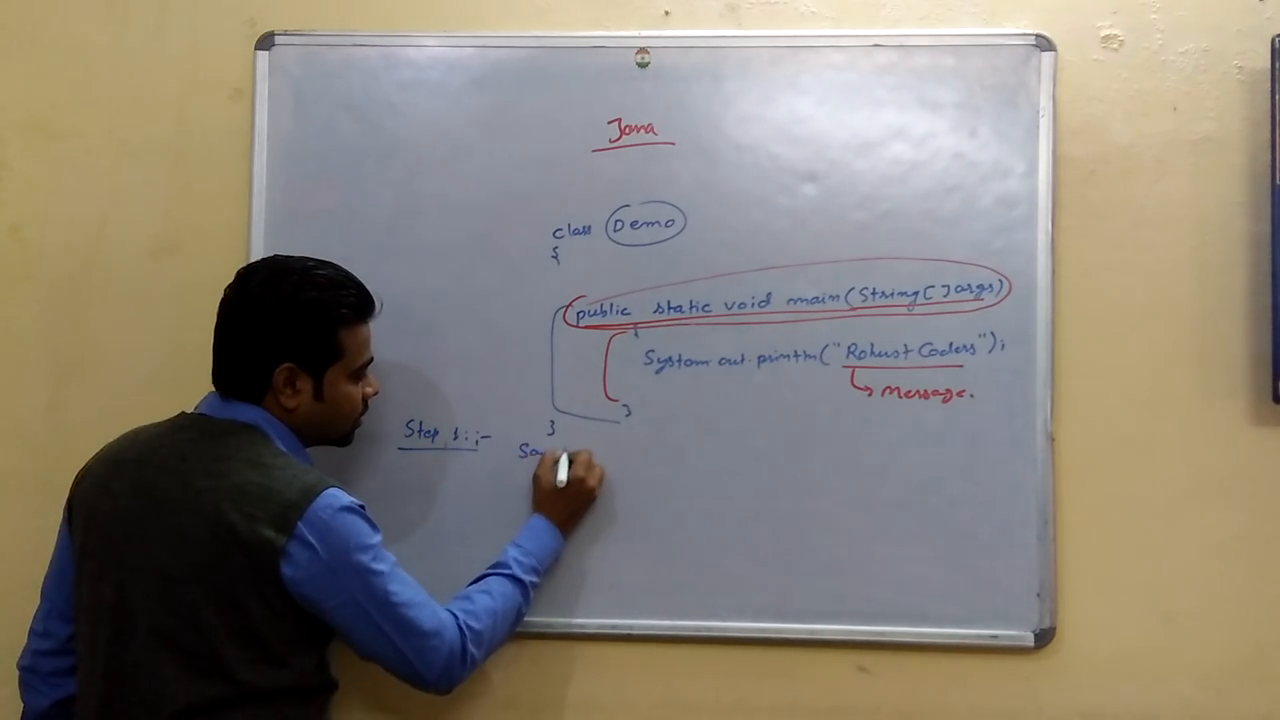 Java
class Demo
{
public static void main(String[]args)
{
System.out.println("Robust Coders");
→ Message.
}
}
Step 1:;-